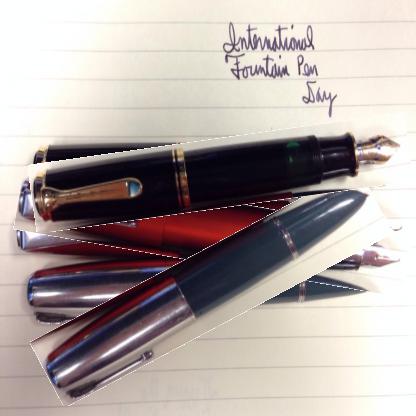 International
Fountain Pen
Day